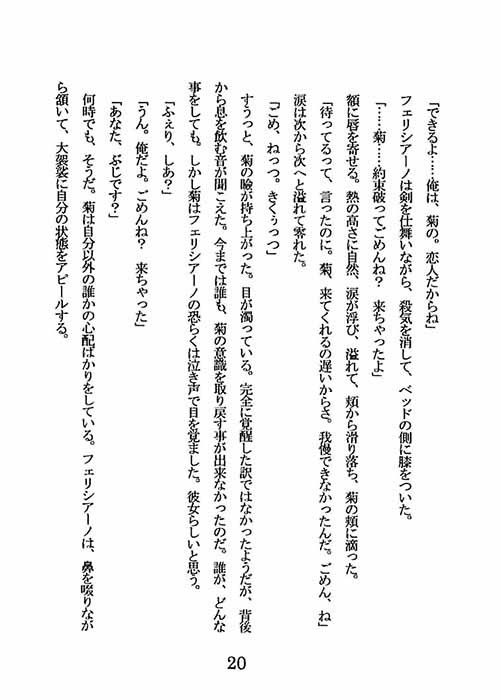 「できるよ……俺は、菊の。恋人だからね」
フェリシアーノは剣を仕舞いながら、殺気を消して、ベッドの側に膝をついた。
「……菊……約束破ってごめんね？　来ちゃったよ」
額に唇を寄せる。熱の高さに自然、涙が浮び、溢れて、頬から滑り落ち、菊の頬に滴った。
「待ってるって、言ったのに。菊、来てくれるの遅いからさ。我慢できなかったんだ。ごめん、ね」
涙は次から次へと溢れて零れた。
「ごめ、ねっつ。きくぅっつ」
すうっと、菊の瞼が持ち上がった。目が濁っている。完全に覚醒した訳ではなかったようだが、背後
から息を飲む音が聞こえた。今までは誰も、菊の意識を取り戻す事が出来なかったのだ。誰が、どんな
事をしても。しかし菊はフェリシアーノの恐らくは泣き声で目を覚ました。彼女らしいと思う。
「ふぇり、しあ？」
「うん。俺だよ。ごめんね？　来ちゃった」
「あなた、ぶじです？」
何時でも、そうだ。菊は自分以外の誰かの心配ばかりをしている。フェリシアーノは、鼻を啜りなが
ら頷いて、大袈裟に自分の状態をアピールする。
20